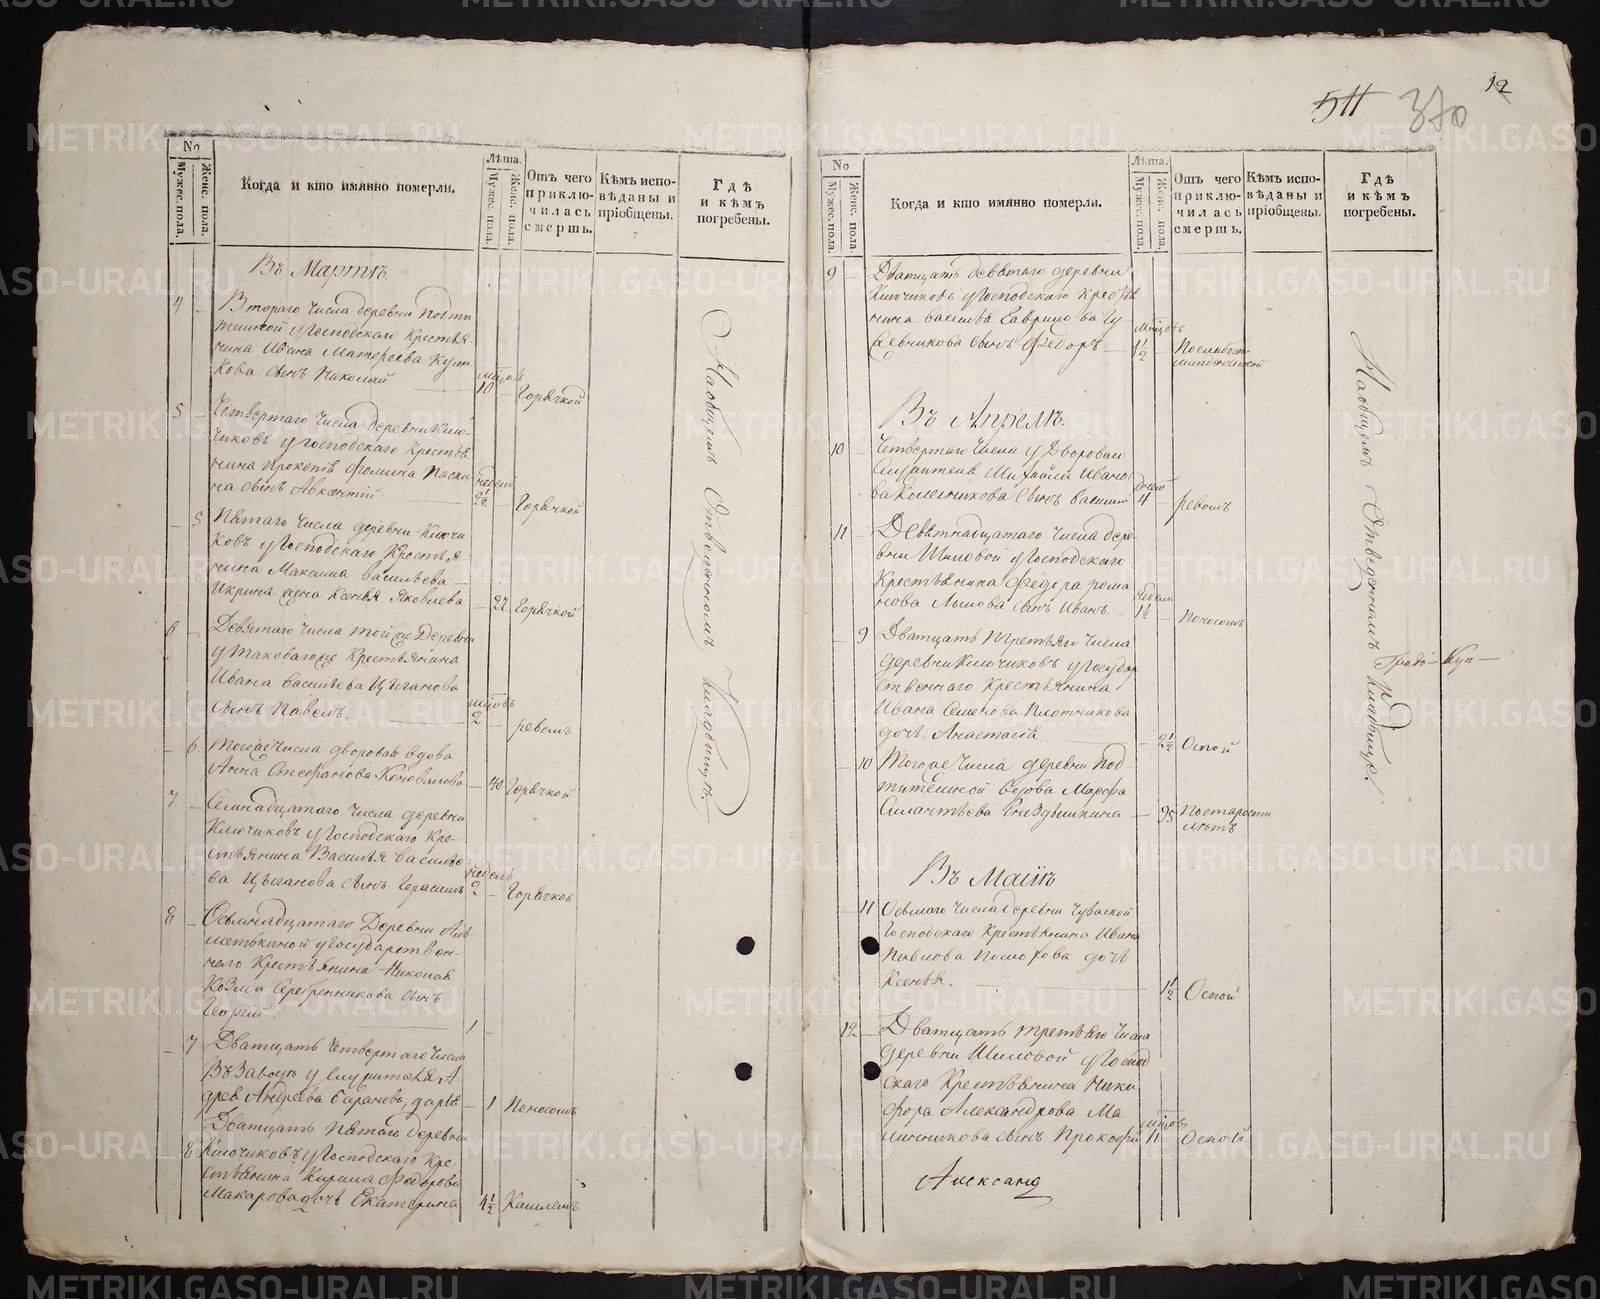 12
511 370
No
Мужес. пола.
Женс. пола.
Когда и кто имянно померли.
Лѣта.
Мужес. пола.
Женс. пола.
Отъ чего приклю-чилась смерть.
Кѣмъ испо-вѣданы и пріобщены.
Гдѣ и кѣмъ погребены.
Въ Мартѣ
4 Втораго числа деревни Подти
теинной у Господскаго Крестья
нина
кова сынъ Николай 10 Горячкой
5 Четвертаго числа деревни Клю-
чиковъ у Господскаго Крестья
нина Прокопья Фомина
на сынъ Авксентій недель 2 1/2 Горячкой
5 Пятаго числа деревни Ключи
ковъ у Господскаго Крестья
нина Максима Васильева
Икрина жена Ксенья Яковлева 27 Горячкой
6 Девятаго числа той же Деревни
у таковагоже Крестьянина
Ивана Васильева Цыганова
сынъ Павелъ. 2 ревомъ
6 Тогоже числа дворовая вдова
Анна Стефанова Коновалова 40 Горячкой
7 Семнадцатаго числа деревни
Ключиковъ у Господскаго Кре-
стьянина Василья Василье
ва Цыганова сынъ Герасимъ недель 2 Горячкой
8 Осьмнадцатаго Деревни
у Государствен-
наго Крестьянина Николая
Козма Серебренникова сынъ
Георгій. 1
7 Дватцать четвертаго числа
Въ Заводе у служителя А
дрея Андреева Баранова, дарья 1 Поносомъ
Дватцать пятаго деревни
8 Ключиковъ у Господскаго Кре
стьянина Кирила Федорова
Макарова дочь Екатерина 4 1/2 Кашлемъ
На общемъ Отведенномъ Кладбищѣ.
No
Мужес. пола.
Женс. пола.
Когда и кто имянно померли.
Лѣта.
Мужес. пола.
Женс. пола.
Отъ чего приклю-чилась смерть.
Кѣмъ испо-вѣданы и пріобщены.
Гдѣ и кѣмъ погребены.
9 Дватцать девятаго деревни
Ключиковъ у Господскаго Крестья
нина Василья Гаврилова
сынъ Федоръ 1 1/2 Послабост
младенческой
Въ Апрелѣ.
10 Четвертаго числа у Двороваго
Михайла Ивано
ва Колесникова сынъ Василій дней 4 ревомъ
11 Девятнадцатаго числа дере
вни Шиловой у Господскаго
Крестьянина Федора рома
нова сынъ Иванъ недели 1 1/2 Поносомъ
9 Дватцать третьяго числа
деревни Ключиковъ у Государ
ственнаго Крестьянина
Ивана Семенова Плотникова
дочь Анастасій 2 1/2 Оспой
10 Тогоже числа деревни Под
вдова Марфа
Силантьева Гнездышкина 95 Постарости
лѣтъ
Въ Маіѣ
11 Осьмаго числа деревни Чувашской
Господскаго Крестьянина Ивана
Павлова дочь
Ксенья. 1 1/2 Оспой
12 Дватцать третьяго числа
деревни Шиловой у Господ
скаго Крестьянина Ники
фора Александрова Ма
линникова сынъ Прокофій 11 Оспой
Александ
На общемъ Отведенномъ Кладбище.